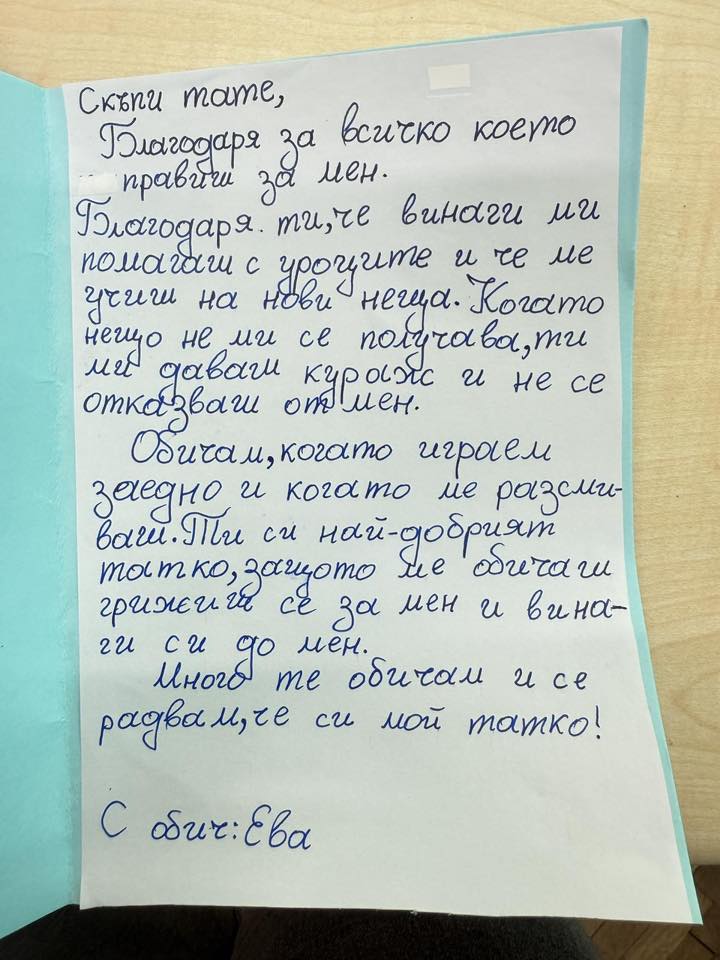 Скъпи тате,
Благодаря за всичко което
правиш за мен.
Благодаря ти, че винаги ми
помагаш с уроците и че ме
учиш на нови неща. Когато
нещо не ми се получава, ти
ми даваш кураж и не се
отказваш от мен.
Обичам, когато играем
заедно и когато ме разсми-
ваш. Ти си най-добрият
татко, защото ме обичаш
грижиш се за мен и вина-
ги си до мен.
Много те обичам и се
радвам, че си мой татко!
С обич: Ева